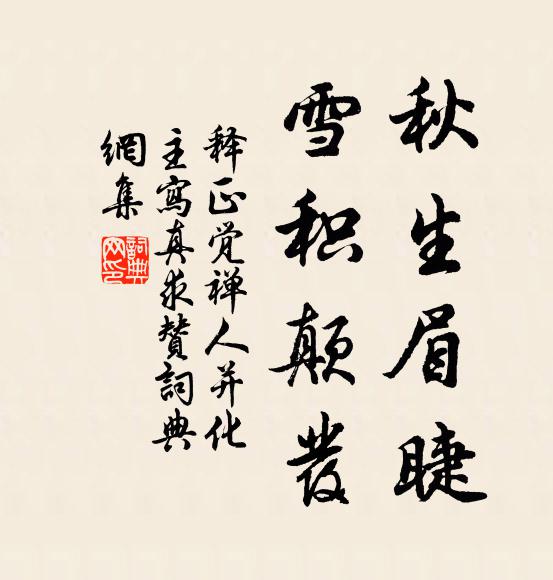 秋生眉睫
雪积颠发
释正觉禅人并化
主寫真求赞詞典
網集
詞典网印